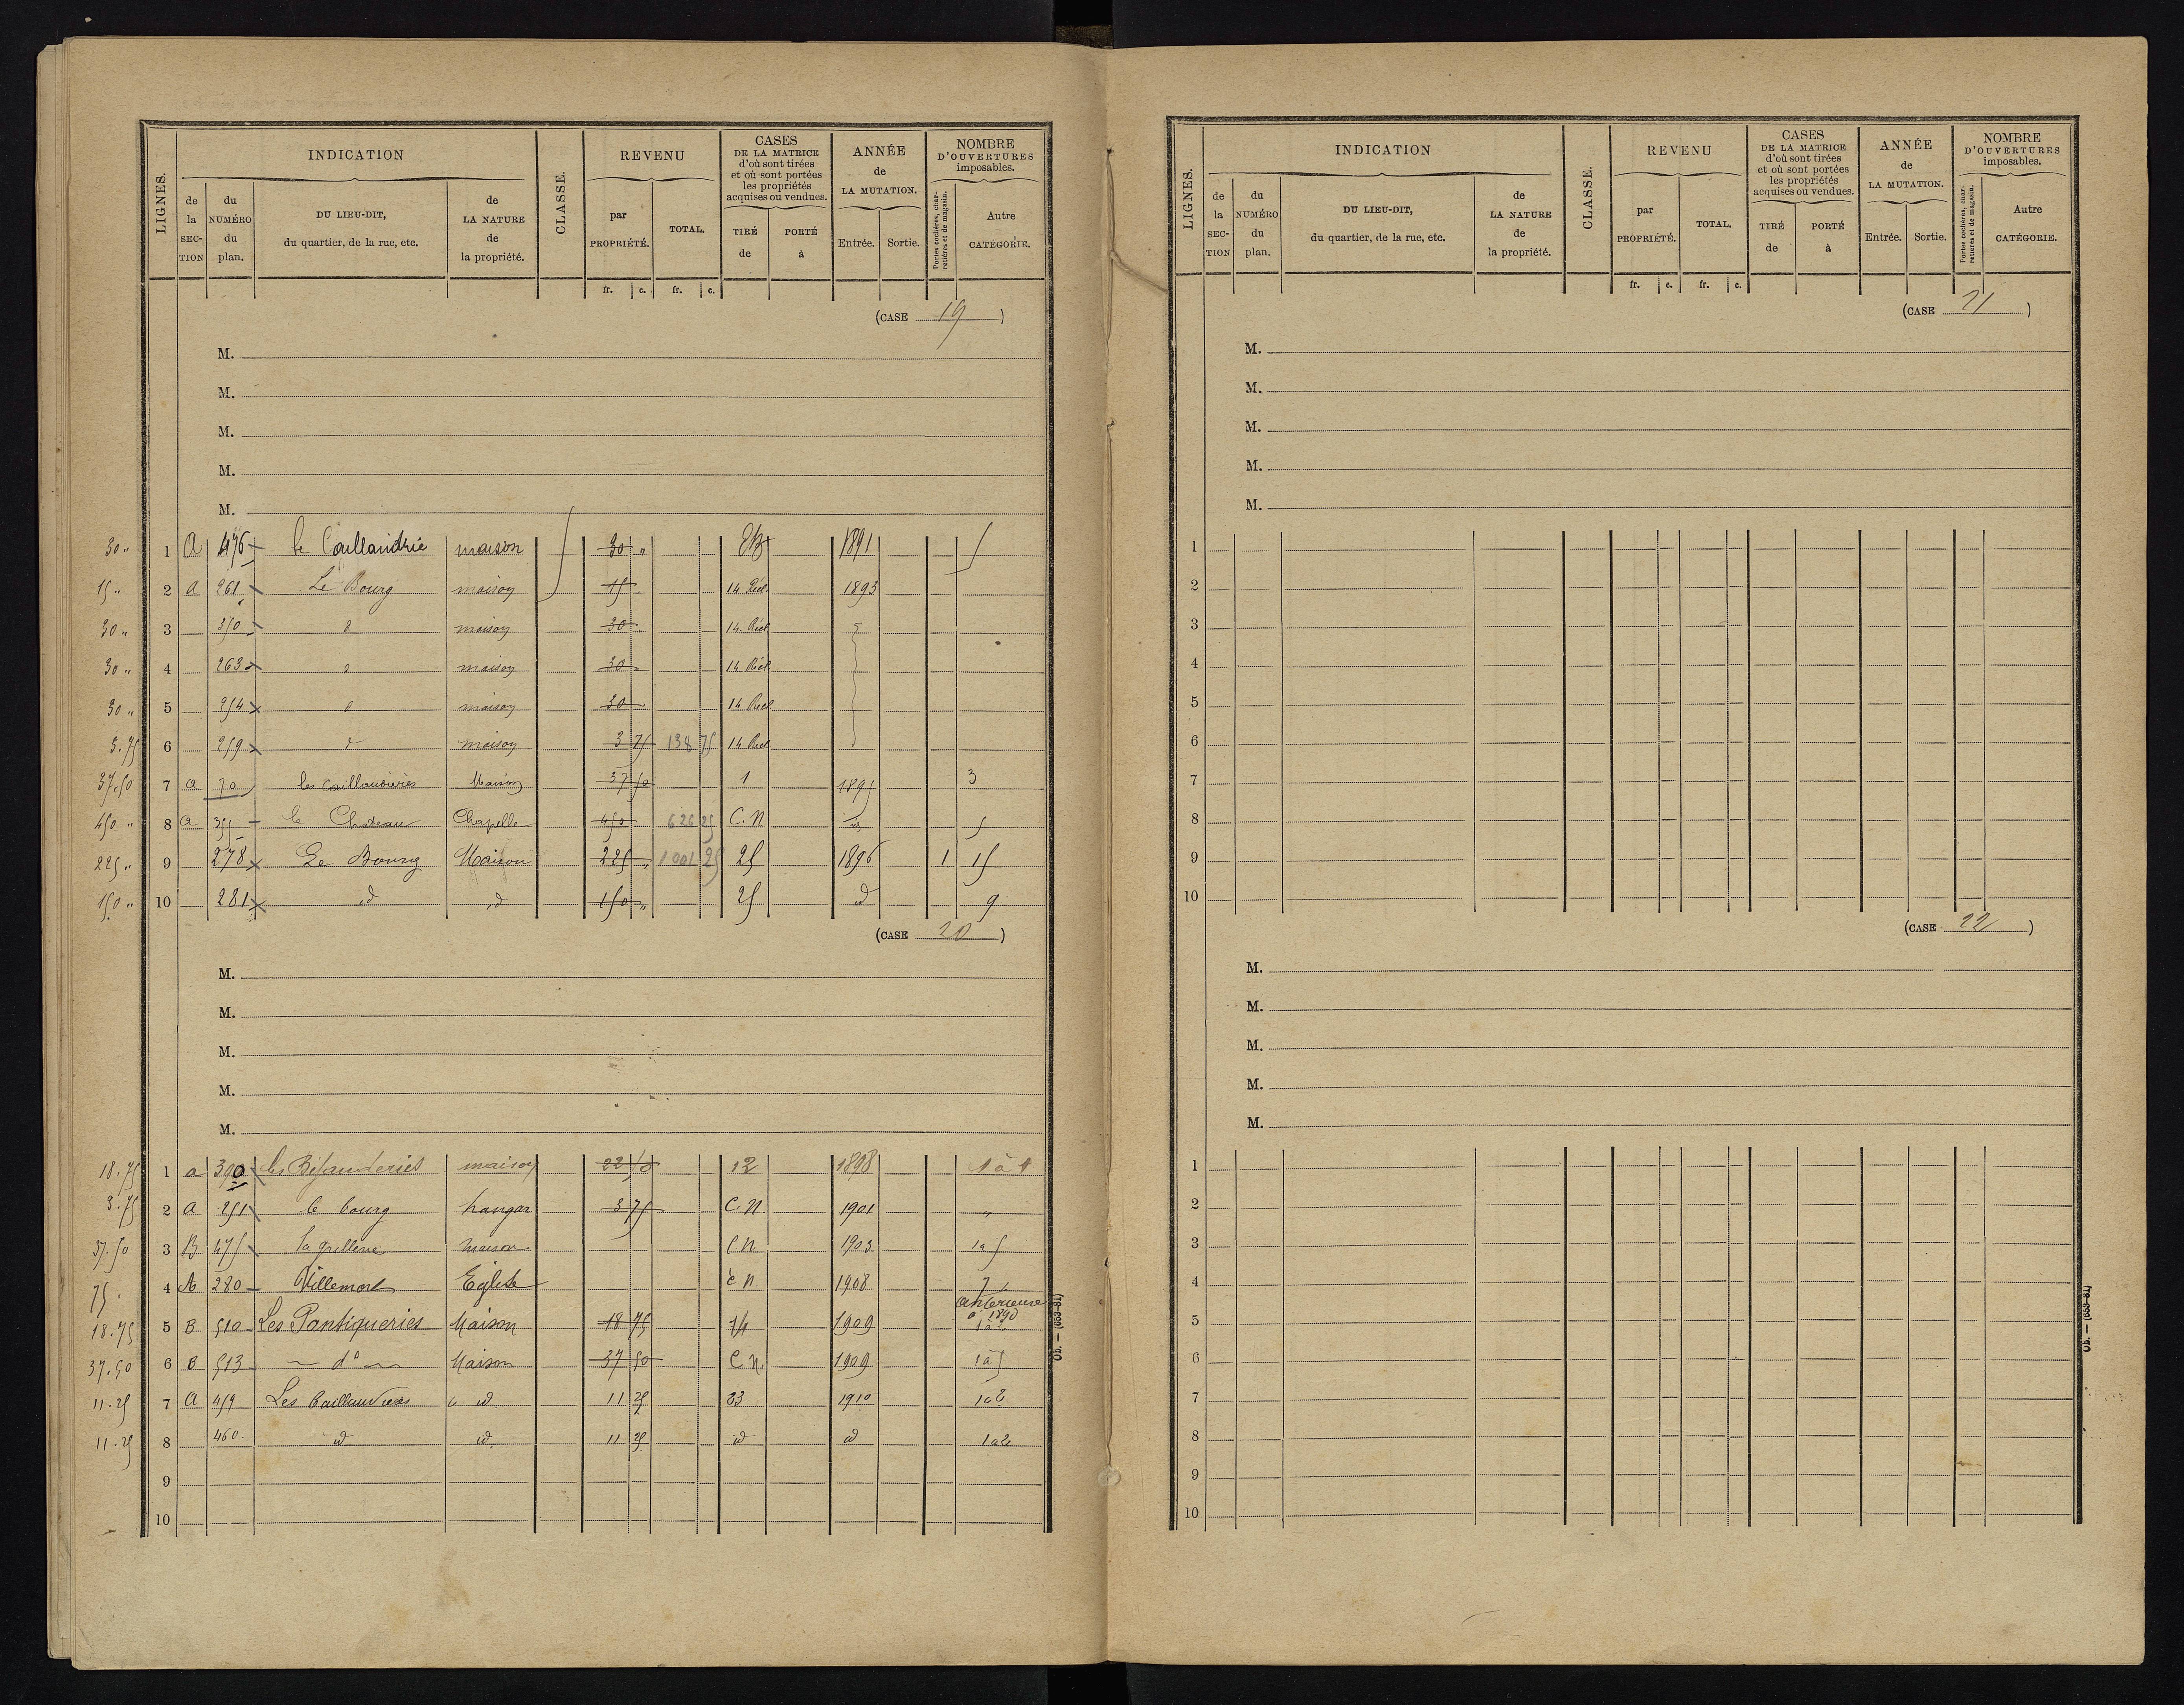 LIGNES.
INDICATION
CLASSE.
REVENU
CASES
DE LA MATRICE
d'où sont tirées
et où sont portées
les propriétés
acquises ou vendues.
ANNÉE
de
LA MUTATION.
NOMBRE
D'OUVERTURES
imposables.
de la SEC-TION
du NUMÉRO du plan.
DU LIEU-DIT,
du quartier, de la rue, etc.
de LA NATURE de la propriété.
par PROPRIÉTÉ.
TOTAL.
TIRÉ de
PORTÉ à
Entrée.
Sortie.
Portes cochères, charretières et de magasin.
Autre CATÉGORIE.
fr. c. fr. c.
(CASE 19)
M.
M.
M.
M.
M.
30 " 1 A 476 maison 30 " 1891
15 " 2 A 261 Le Bourg maison 15 14 1893
30 " 3 350 d maison 30 14
30 " 4 263 d maison 30 14
30 " 5 254 d maison 30 14
3.75 6 259 d maison 3 75 138 75 14
37.50 7 a 70 les Caillaudières Maison 37 50 1 1895 3
450 " 8 a 355 le Chateau Chapelle 450 626 25 C.N id 5
225 " 9 278 Le Bourg Maison 225 " 1001 25 25 1896 1 15
150 " 10 281 id id 150 " 25 d 9
(CASE 20)
M.
M.
M.
M.
M.
18.75 1 a 390 maison 22 50 12 1898 1 à 1
3.75 2 A 251 le bourg hangar 3 75 C.N. 1901 "
37.50 3 B 475 maison C N 1903 1 à 5
75 . 4 A 280 Villemort Eglise C N. 1908 7
antérieure à 1890
18.75 5 B 510 Les Pantiqueries Maison 18 75 14 1909 1 à 2
37.50 6 B 513 d° Maison 37 50 C N. 1909 1 à 5
11.25 7 A 459 Les Caillaudières id 11 25 23 1910 1 à 2
11.25 8 460 id id 11 25 id id 1 à 2
9
10
Ob. — (653-81)
LIGNES.
INDICATION
CLASSE.
REVENU
CASES
DE LA MATRICE
d'où sont tirées
et où sont portées
les propriétés
acquises ou vendues.
ANNÉE
de
LA MUTATION.
NOMBRE
D'OUVERTURES
imposables.
de la SEC-TION
du NUMÉRO du plan.
DU LIEU-DIT,
du quartier, de la rue, etc.
de LA NATURE de la propriété.
par PROPRIÉTÉ.
TOTAL.
TIRÉ de
PORTÉ à
Entrée.
Sortie.
Portes cochères, charretières et de magasin.
Autre CATÉGORIE.
fr. c. fr. c.
(CASE 21)
M.
M.
M.
M.
M.
1
2
3
4
5
6
7
8
9
10
(CASE 22)
M.
M.
M.
M.
M.
1
2
3
4
5
6
7
8
9
10
Ob. — (653-81)